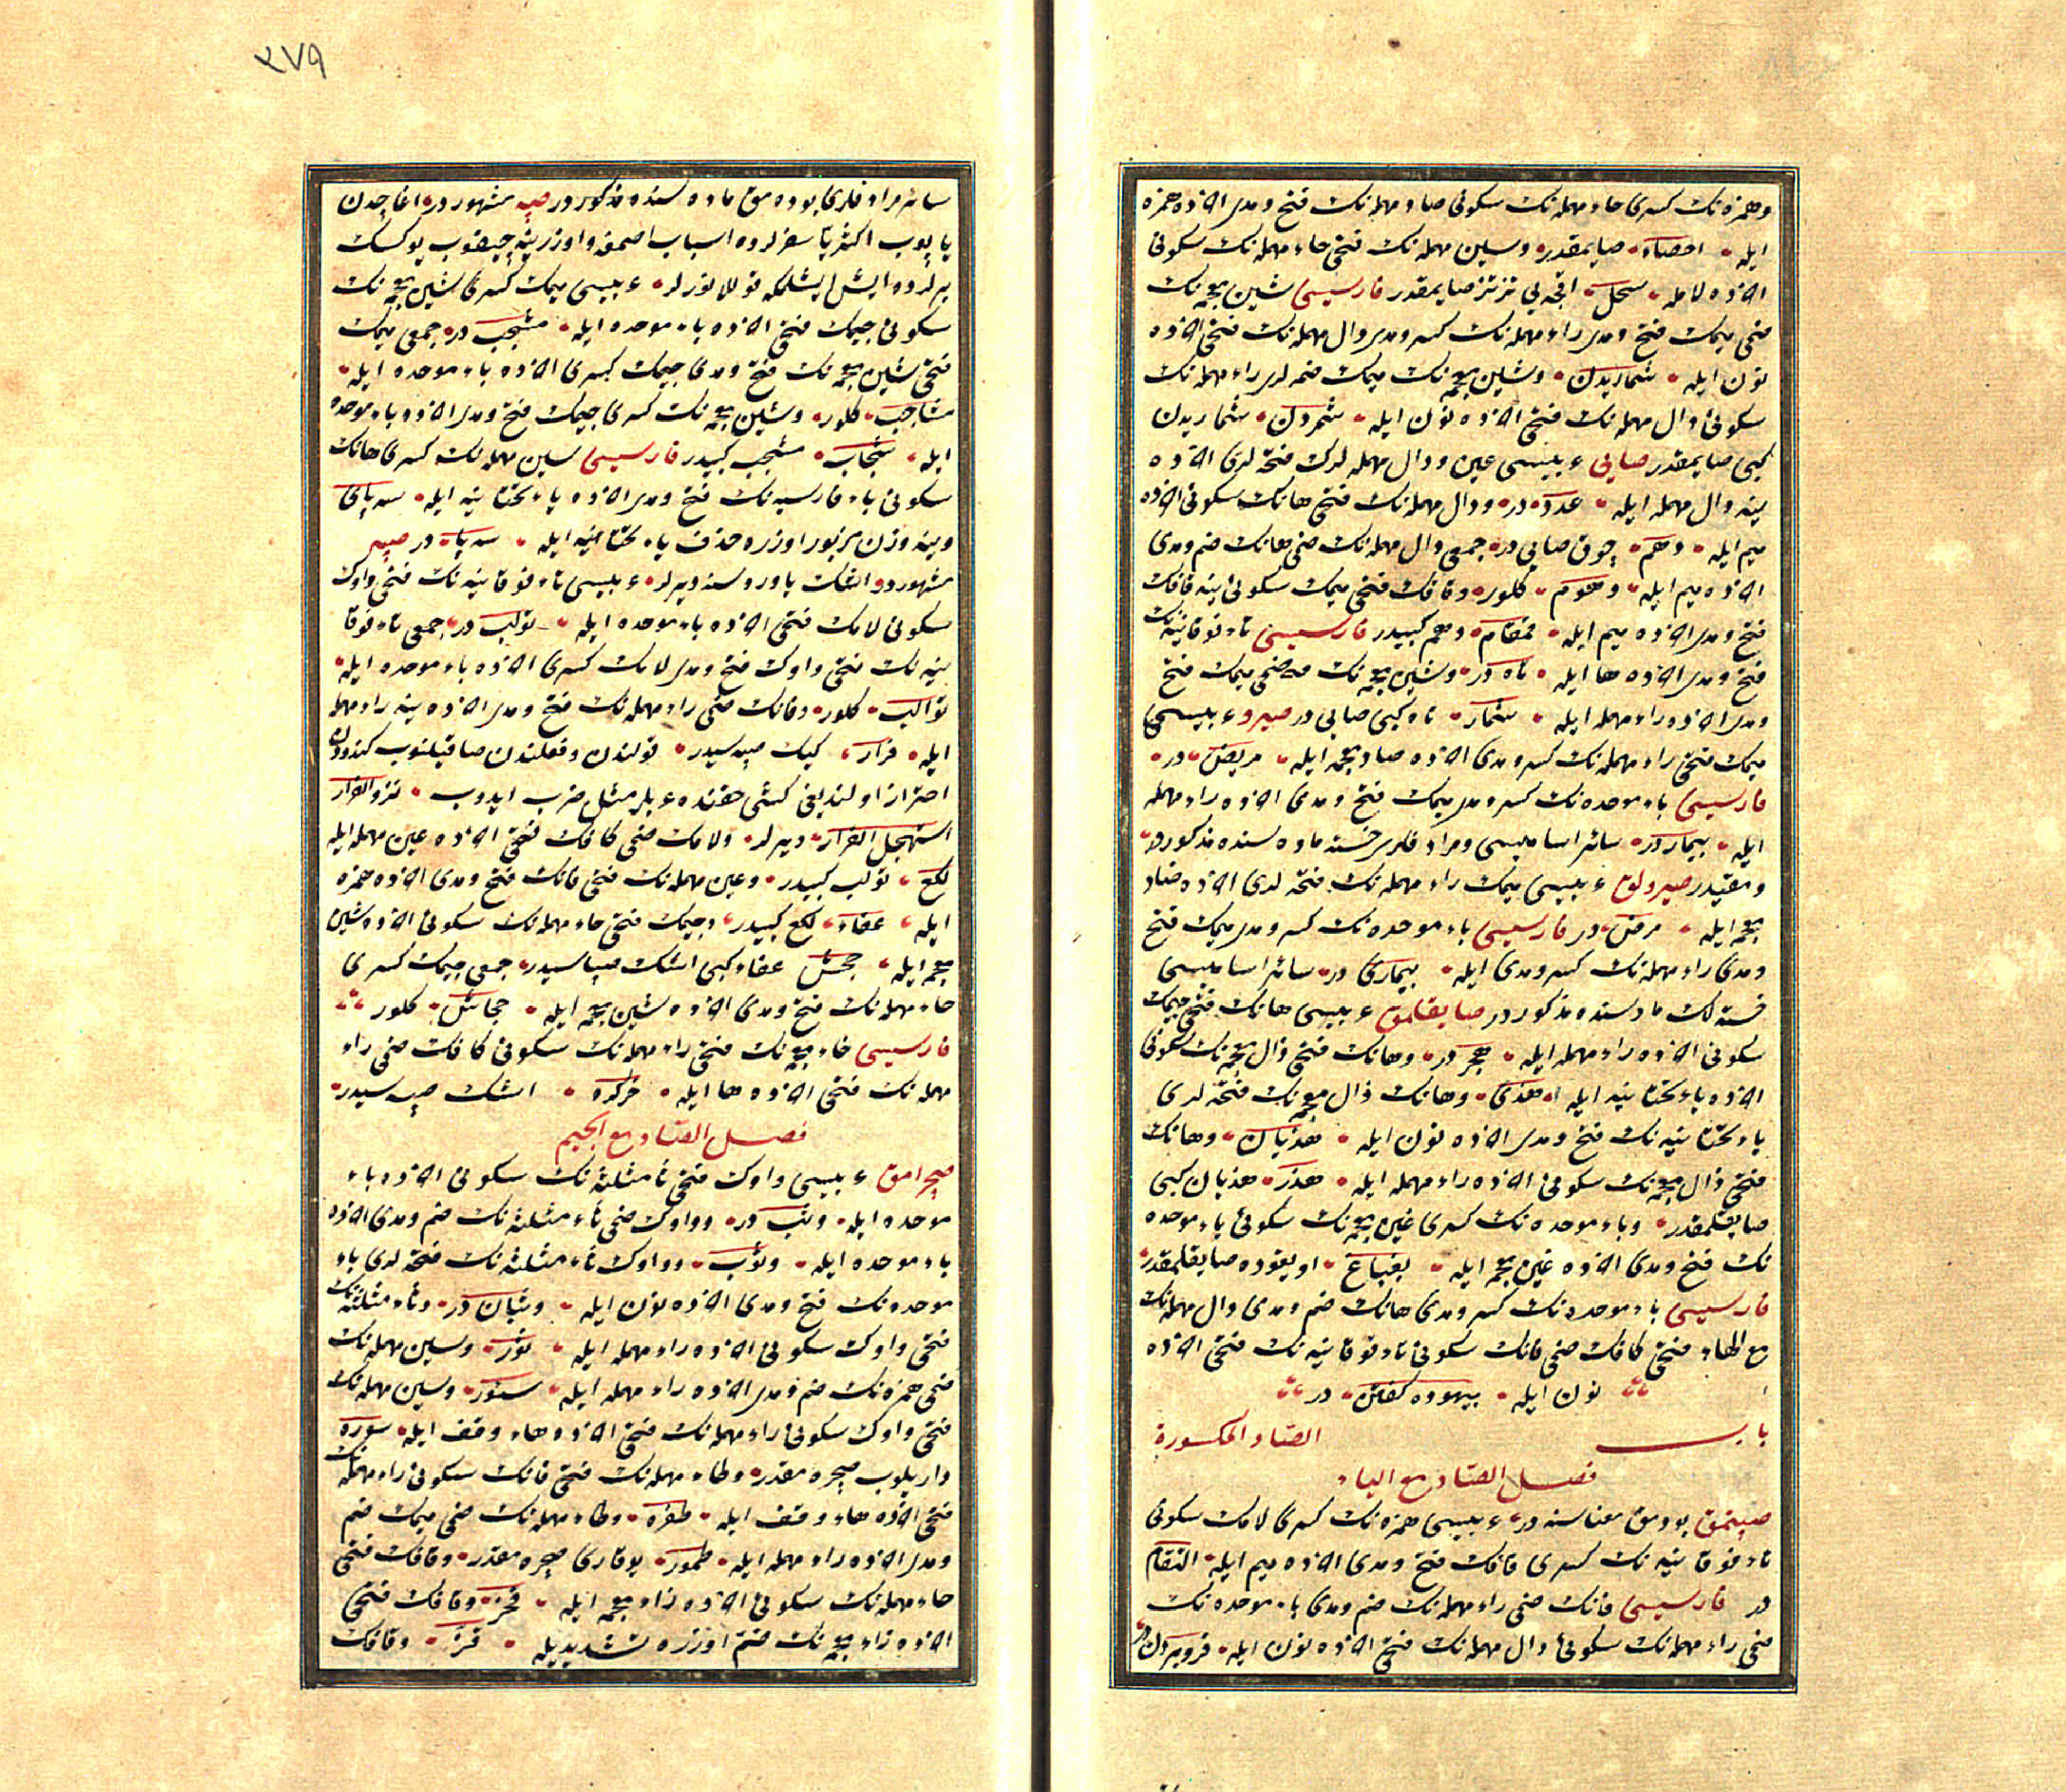 وهمزه نك كسرى حاء مهمله نك سكونى صاد مهمله نك فتح ومدى اخرده همزه
ايله احصاء صايمقدر وسين مهمله نك فتحى حاء مهمله نك سكونى
اخرده لامله سحل اقچه يى تز تز صايمقدر فارسيسى شين معجمه نك
ضمى ميمك فتح ومدى راء مهمله نك كسر ومدى دال مهمله نك فتحى اخرده
نون ايله شماريدن وشين معجمه نك ميمك ضمه لرى راء مهمله نك
سكونى دال مهمله نك فتحى اخرده نون ايله شمردن شماريدن
كبى صايمقدر صايى عربيسى عين ودال مهمله لرك فتحه لرى اخرده
ينه دال مهمله ايله عدد در ودال مهمله نك فتحى هانك سكونى اخرده
ميم ايله دهم چوق صايى در جمعى دال مهمله نك ضمى هانك ضم ومدى
اخرده ميم ايله دهوم كلور وقافك فتحى ميمك سكونى ينه قافك
فتح ومدى اخرده ميم ايله قمقام دهم كبيدر فارسيسى تاء فوقانيه نك
فتح ومدى اخرده ها ايله تاه در وشين معجمه نك ضمى ميمك فتح
ومدى اخرده راء مهمله ايله شمار تاه كبى صايى در صيرو عربيسى
ميمك فتحى راء مهمله نك كسر ومدى اخرده ضاد معجمه ايله مريض در
فارسيسى باء موحده نك كسر ومدى ميمك فتح ومدى اخرده راء مهمله
ايله بيمار در سائر اساميسى ومرادفلرى خسته ماده سنده مذكور در
ومقيددر صيرولق عربيسى ميمك راء مهمله نك فتحه لرى اخرده ضاد
معجمه ايله مرض در فارسيسى باء موحده نك كسر ومدى ميمك فتح
ومدى راء مهمله نك كسر ومدى ايله بيمارى در سائر اساميسى
خسته لك ماده سنده مذكور در صايقلامق عربيسى هانك فتحى جيمك
سكونى اخرده راء مهمله ايله هجر در وهانك فتحى ذال معجمه نك سكونى
اخرده ياء تحتانيه ايله هذى وهانك ذال معجمه نك فتحه لرى
ياء تحتانيه نك فتح ومدى اخرده نون ايله هذيان وهانك
فتحى ذال معجمه نك سكونى اخرده راء مهمله ايله هذر هذيان كبى
صايقلمقدر وباء موحده نك كسرى غين معجمه نك سكونى باء موحده
نك فتح ومدى اخرده غين معجمه ايله بغباغ اويقوده صايقلمقدر
فارسيسى باء موحده نك كسر ومدى هانك ضم ومدى دال مهمله نك
مع الهاء فتحى كافك ضمى فانك سكونى تاء فوقانيه نك فتحى اخرده
نون ايله بيهوده كفتن در
باب الصاد المكسورة
فصل الصاد مع الباء
صپتمق بودمق معناسنه در عربيسى همزه نك كسرى لامك سكونى
تاء فوقانيه نك كسرى قافك فتح ومدى اخرده ميم ايله التقام
در فارسيسى فانك ضمى راء مهمله نك ضم ومدى باء موحده نك
ضمى راء مهمله نك سكونى دال مهمله نك فتحى اخرده نون ايله فروبردن در
٢٧٩
سائر مرادفلرى بودمق ماده سنده مذكور در صپه مشهور در اغاجدن
ياپلوب اكثريا سفرلرده اسباب اصمغه واوزرينه چيقوب يوكسك
يرلرده ايش ايشلمكه قوللانورلر عربيسى ميمك كسرى شين معجمه نك
سكونى جيمك فتحى اخرده باء موحده ايله مشجب در جمعى ميمك
فتحى شين معجمه نك فتح ومدى جيمك كسرى اخرده باء موحده ايله
مشاجب كلور وشين معجمه نك كسرى جيمك فتح ومدى اخرده باء موحده
ايله شجاب مشجب كبيدر فارسيسى سين مهمله نك كسرى هانك
سكونى باء فارسيه نك فتح ومدى اخرده ياء تحتانيه ايله سه پاى
وينه وزن مزبور اوزره حذف ياء تحتانيه ايله سه پا در صپه
مشهوردر اشك ياوروسنه ديرلر عربيسى تاء فوقانيه نك فتحى واوك
سكونى لامك فتحى اخرده باء موحده ايله تولب در جمعى تاء فوقا
نيه نك فتحى واوك فتح ومدى لامك كسرى اخرده باء موحده ايله
توالب كلور وفانك ضمى راء مهمله نك فتح ومدى اخرده ينه راء مهمله
ايله فرار كيك صپه سيدر قولندن وفعلندن صاقنلنوب كندودن
احتراز اولنديغى كشى حقنده عربلر مثل ضرب ايدوب نزو الفرار
استجهل الفرار ديرلر ولامك ضمى كافك فتحى اخرده عين مهمله ايله
لكع تولب كبيدر وعين مهمله نك فتحى فانك فتح ومدى اخرده همزه
ايله عفاء لكع كبيدر وجيمك فتحى حاء مهمله نك سكونى اخرده شين
معجمه ايله جحش عفاء كبى اشك صپاسيدر جمعى جيمك كسرى
حاء مهمله نك فتح ومدى اخرده شين معجمه ايله جحاش كلور
فارسيسى خاء معجمه نك فتحى راء مهمله نك سكونى كافك ضمى راء
مهمله نك فتحى اخرده ها ايله خركره اشك صپه سيدر
فصل الصاد مع الجيم
صچرامق عربيسى واوك فتحى ثاء مثلثه نك سكونى اخرده باء
موحده ايله وثب در وواوك ضمى ثاء مثلثه نك ضم ومدى اخرده
باء موحده ايله وثوب وواوك ثاء مثلثه نك فتحه لرى باء
موحده نك فتح ومدى اخرده نون ايله وثبان در وثاء مثلثه نك
فتحى واوك سكونى اخرده راء مهمله ايله ثور وسين مهمله نك
ضمى همزه نك ضم ومدى اخرده راء مهمله ايله سئور وسين مهمله نك
فتحى واوك سكونى راء مهمله نك فتحى اخرده هاء وقف ايله سورة
داريلوب صچره مقدر وطاء مهمله نك فتحى فانك سكونى راء مهمله نك
فتحى اخرده هاء وقف ايله طفره وطاء مهمله نك ضمى ميمك ضم
ومدى اخرده راء مهمله ايله طمور يوقارى صچره مقدر وقافك فتحى
حاء مهمله نك سكونى اخرده زاء معجمه ايله قحز وقافك فتحى
اخرده زاء معجمه نك ضم اوزره تشديديله قز وقافك